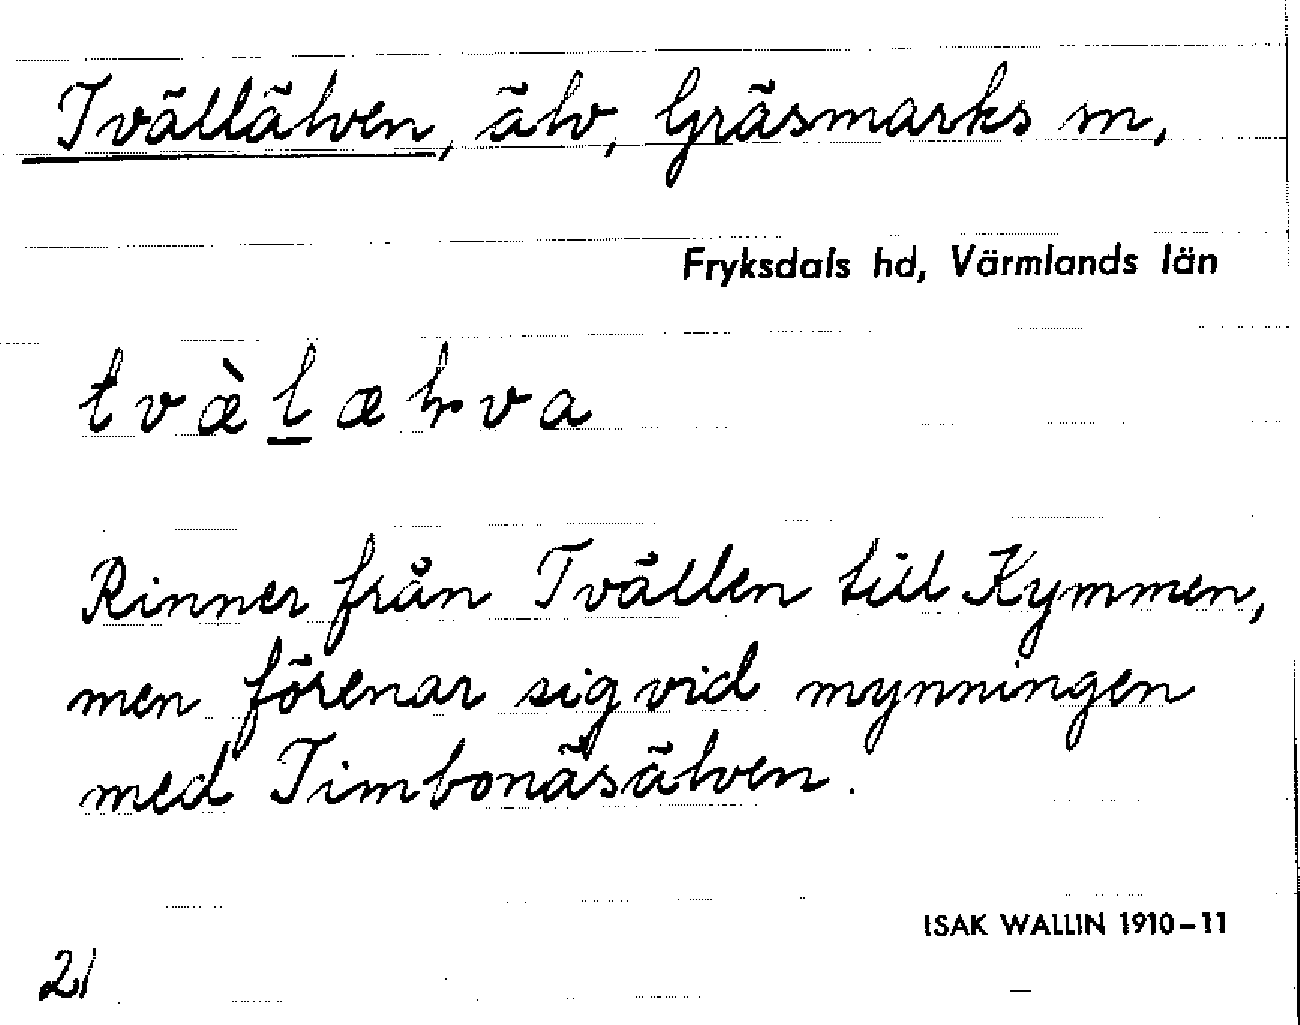 Tvällälven, älv, Gräsmarks sn,
Fryksdals hd, Värmlands län
Rinner från Tvällen till Kymmen,
men förenar sig vid mynningen
med Timbonäsälven.
ISAK WALLIN 1910-11
21